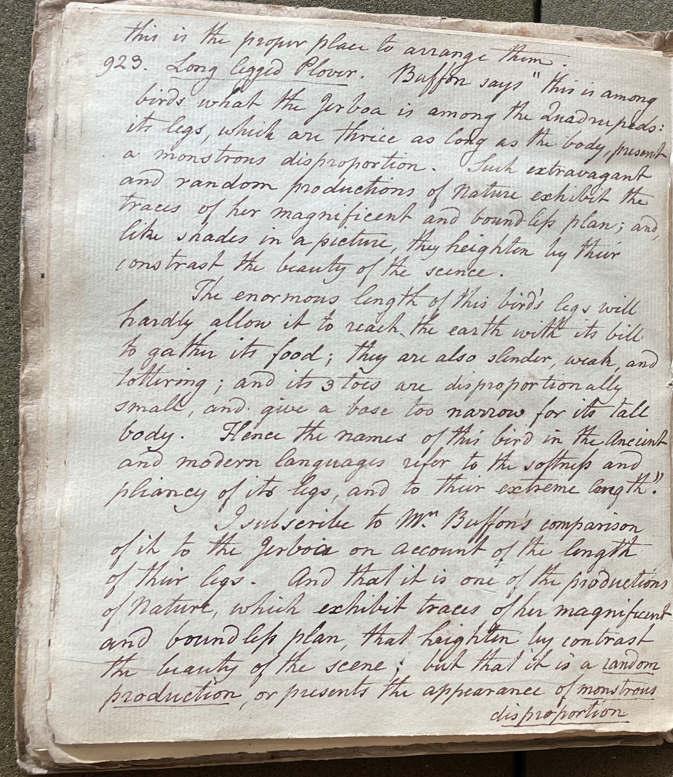 this is the proper place to arrange them.
923. Long legged Plover. Buffon says "this is among
birds what the Jerboa is among the Quadrupeds:
its legs, which are thrice as long as the body, present
a monstrous disproportion. Such extravagant
and random productions of Nature exhibit the
traces of her magnificent and boundless plan; and,
like shades in a picture, they heighten by their
constrast the beauty of the scence.
The enormous length of this bird's legs will
hardly allow it to reach the earth with its bill
to gather its food; they are also slender, weak, and
tottering; and its 3 toes are disproportionally
small, and give a base too narrow for its tall
body. Hence the names of this bird in the Ancient
and modern languages refer to the softness and
pliancy of its legs, and to their extreme length."
I subscribe to Mr. Buffon's comparison
of it to the Jerboia on account of the length
of their legs. And that it is one of the productions
of Nature, which exhibit traces of her magnificent
and boundless plan, that heighten by contrast
the beauty of the scene; but that it is a random
production, or presents the appearance of monstrous
disproportion